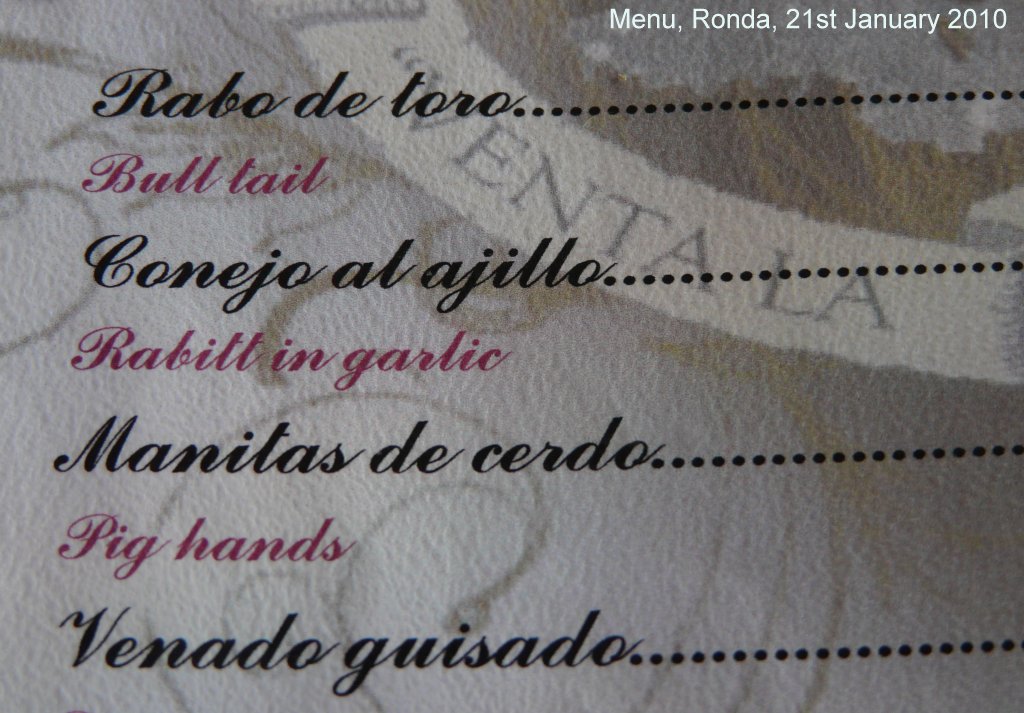 Menu, Ronda, 21st January 2010
Rabo de toro..............................
Bull tail
"VENTA LA
Conejo al ajillo..............................
Rabitt in garlic
Manitas de cerdo..............................
Pig hands
Venado guisado..............................